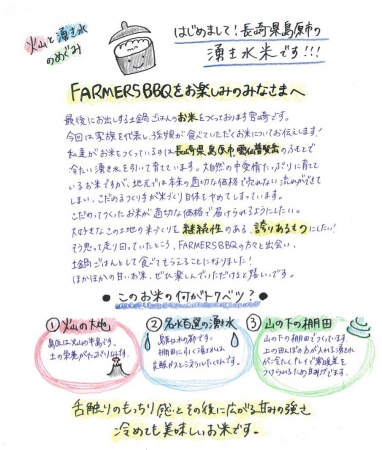 火山と湧き水
のめぐみ
はじめまして!長崎県島原市の
湧き水米です!!!
FARMERSBBQをお楽しみのみなさまへ
最後にお出しする土鍋ごはんのお米をつくっております宮崎です。
今回は家族を代表し、孫娘が食べていただくお米についてお伝えします!
私達がお米をつくっているのは長崎県島原市、雲仙普賢岳のふもとで
冷たい湧き水を引いて育てています。大自然の中愛情たっぷりに育て
いるお米ですが、地元では本来の適切な価格で売れない流れができて
しまい、こだわるつくり手が米づくり自体をやめてしまっています。
こだわってつくったお米が適切な価格で届けられるようにしたい。
大好きなこの土地の米づくりを継続性のある、誇りあるものにしたい!
そう思って走り回っていたところ、FARMERSBBQの方々と出会い、
土鍋ごはんとして食べてもらえることになりました!
ほかほかの甘いお米、ぜひ楽しんでいただけると嬉しいです。
このお米の何がトクベツ?
① 火山の大地
島原は火山の半島です。
土の栄養がたっぷりです。
② 名水百選の湧水
島原は水の都です。
棚田に引く湧き水は
炭酸ガスとミネラルたくさんです。
③ 山の下の棚田
山の下の棚田でつくっています。
上の田んぼの水が入れる湧き水
が冷たくキレイで
つけられるため
舌触りのもっちり感とその後に広がる甘みの強さ
冷めても美味しいお米です。